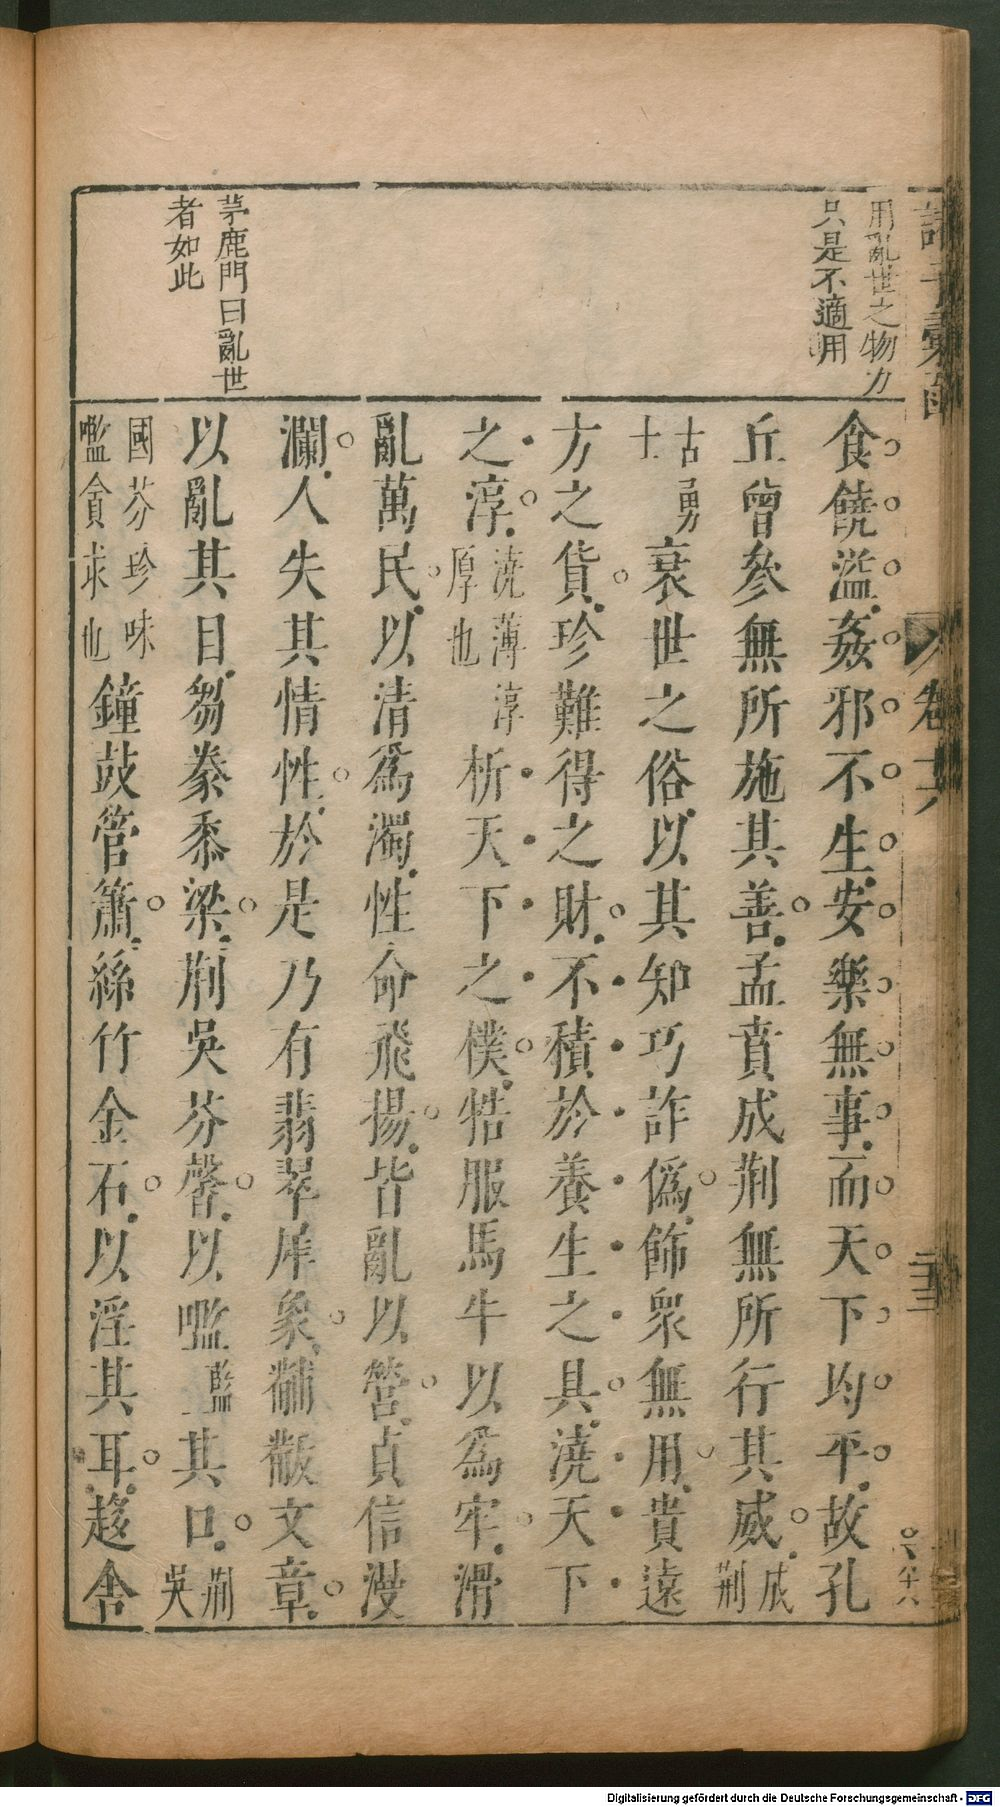 諸子彙函
卷十六
用亂世之物力
只是不適用
茅鹿門曰亂世
者如此
食饒溢姦邪不生安樂無事而天下均平故孔
丘曾參無所施其善孟賁成荆無所行其威成荆
古勇士衰世之俗以其知巧詐偽飾衆無用貴遠
方之貨珍難得之財不積於養生之具澆天下
之淳澆薄淳厚也析天下之樸牿服馬牛以爲牢滑
亂萬民以清爲濁性命飛揚皆亂以營貞信漫
瀾人失其情性於是乃有翡翠犀象黼黻文章
以亂其目芻豢黍梁荆吳芬馨以嚂藍其口荆吳
國芬珍味嚂貪求也鐘鼓管簫絲竹金石以淫其耳趍舍
Digitalisierung gefördert durch die Deutsche Forschungsgemeinschaft - DFG